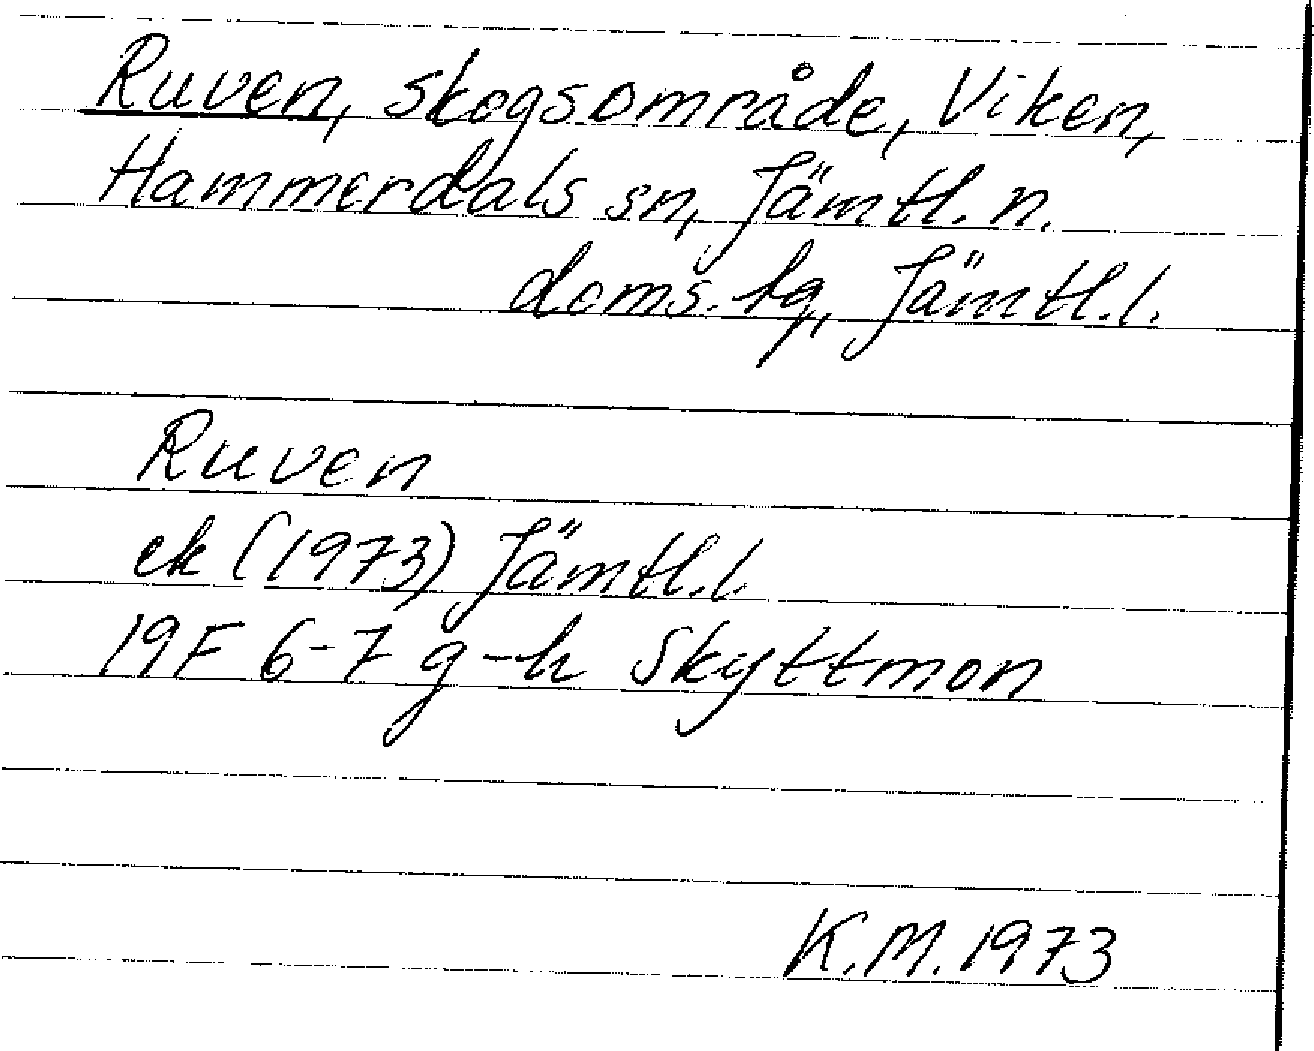 Ruven, skogsområde, Viken,
Hammerdals sn, Jämtl. n.
doms. tg, Jämtl. l.
Ruven
ek (1973) Jämtl. l.
19F 6-7 g-h Skyttmon
K.M. 1973